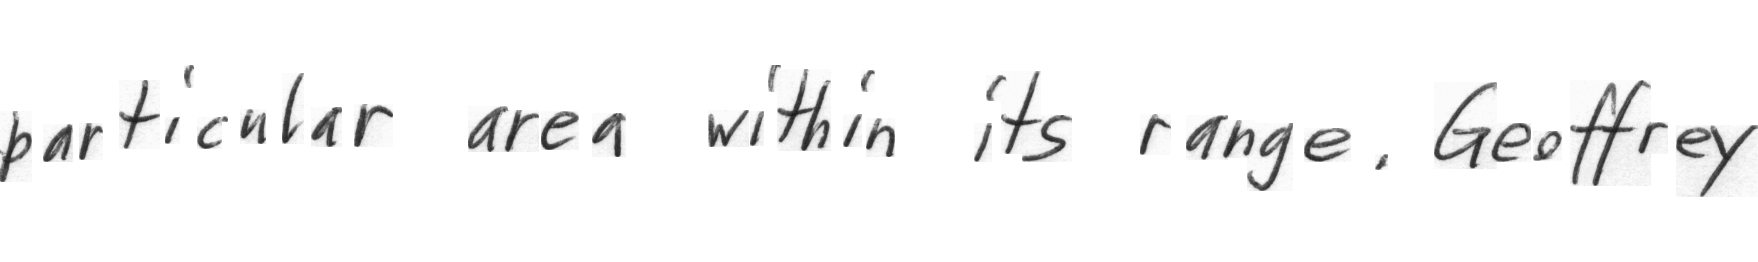 particular area within its range. Geoffrey